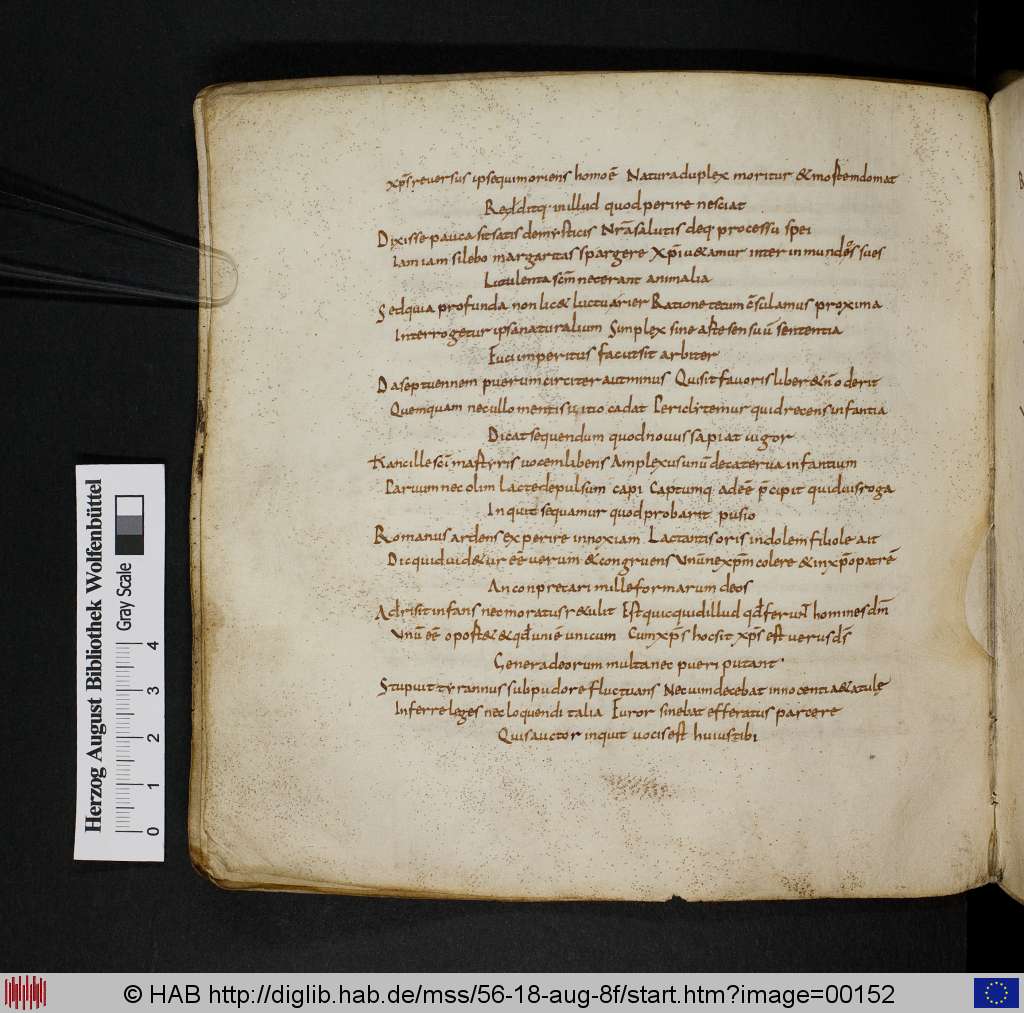 xp̄s reversus ipse quimoriens homoē Natura duplex moritur & mostemdomat
Redditq; inillud quod perire nesciat
Dixisse pauca sit satis demysticis Nr̄ae salutis deq; processu spei
Iam iam silebo margaritas spargere Xp̄i u&amur inter inmundos sues
Lutulenta scm̄ neterant animalia
Sed quia profunda non lic& luctuarier Ratione tecum c̄sulamus proxima
Interrogetur ipsa naturalium Simplex sine afte sensuū sententia
Fuci imperitus fac ut sit arbiter
Da septuennem puerum circiter aut minus Qui sit favoris liber & n̄ oderit
Quemquam nec ullo mentis in uitio cadat Periclytemur quid recens infantia
Dicat sequendum quod novus sapiat uigor
Hanc ille sc̄i martyris uocem libens Amplexus unū de caterua infantium
Parium nec olim lacte depulsum capi Captumq; adeē p̄cipit quiduis roga
Inquit sequamur quod probarit pusio
Romanus ardens experire innoxiam Lactantis oris indolem filiole ait
Dic quid uid&ur eē uerum & congruens Unūne xp̄m colere & in xp̄o patrē
An conprecari mille formarum deos
Adrisit infans nec moratus r&ulit Est quicquid illud qd̄ ferunt homines dm̄
Unū eē oport& & qd̄ uni ē unicum Cum xp̄s hoc sit xp̄s est uerus ds̄
Genera deorum multa nec pueri putant
Stupuit tyrannus sub pudore fluctuans Nec uim decebat innocenti &atulę
Inferre leges nec loquendi talia Furor sinebat efferatus parcere
Quis auctor inquit uocis est huius tibi
Herzog August Bibliothek Wolfenbüttel
Gray Scale
0 1 2 3 4
© HAB http://diglib.hab.de/mss/56-18-aug-8f/start.htm?image=00152